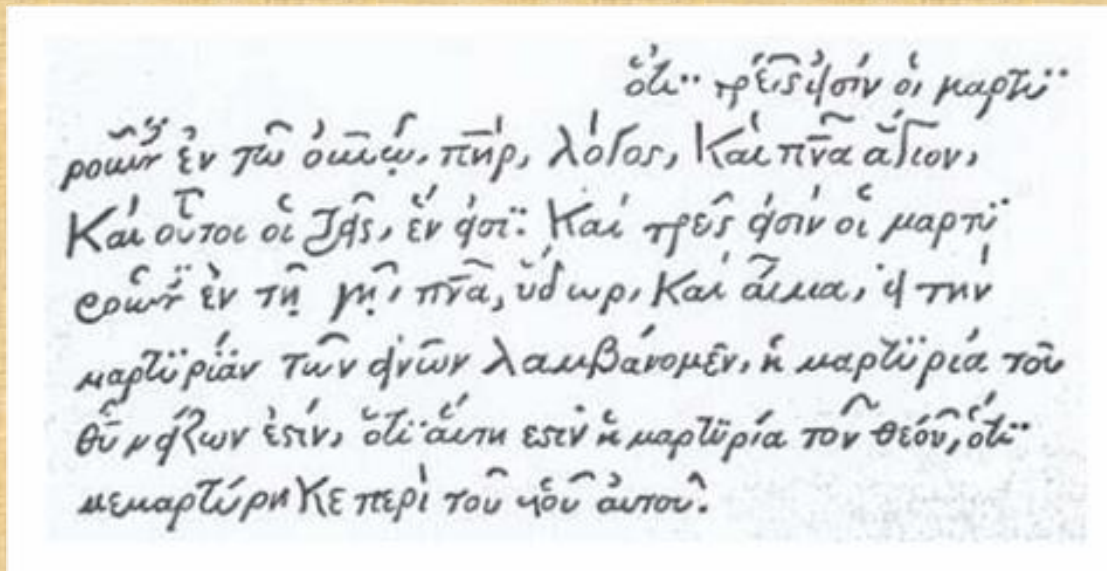 ὅτι τρεῖς εἰσὶν οἱ μαρτυ
ροῦντες ἐν τῷ οὐνῷ, πηρ, λόγος, καὶ πνα ἅγιον,
καὶ οὗτοι οἱ τρεῖς, ἕν εἰσι: καὶ τρεῖς εἰσὶν οἱ μαρτυ
ροῦντες ἐν τῇ γῇ, πνα, ὕδωρ, καὶ αἷμα, εἰ τὴν
μαρτυρίαν τῶν ἀνων λαμβάνομεν, ἡ μαρτυρία τοῦ
θυ μείζων ἐστίν, ὅτι αὕτη ἐστὶν ἡ μαρτυρία τοῦ θεοῦ, ὅτι
μεμαρτύρηκε περὶ τοῦ υἱοῦ αὐτοῦ.